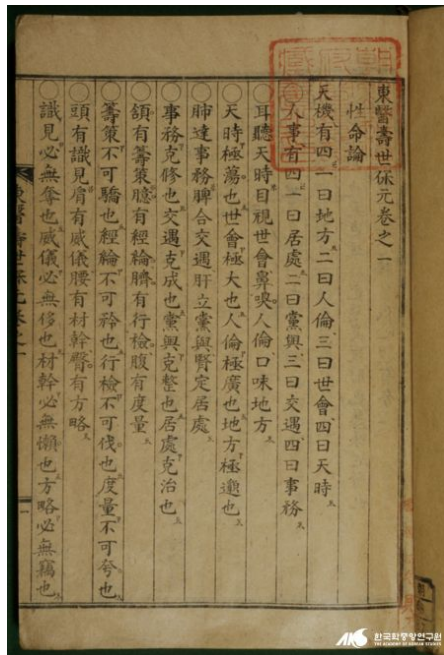 東醫壽世保元卷之一
性命論
天機有四一曰地方二曰人倫三曰世會四曰天時
人事有四一曰居處二曰黨與三曰交遇四曰事務
○耳聽天時目視世會鼻嗅人倫口味地方
○天時極蕩也世會極大也人倫極廣也地方極邈也
○肺達事務脾合交遇肝立黨與腎定居處
○事務克修也交遇克成也黨與克整也居處克治也
○頷有籌策臆有經綸臍有行檢腹有度量
○籌策不可驕也經綸不可矜也行檢不可伐也度量不可夸也
○頭有識見肩有威儀腰有材幹臀有方略
○識見必無奪也威儀必無侈也材幹必無懶也方略必無竊也
東醫壽世保元卷之一
한국학중앙연구원
THE ACADEMY OF KOREAN STUDIES